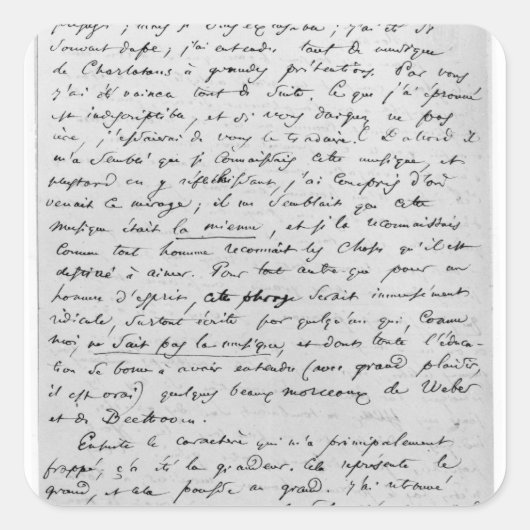 préjugés ; mais si vous exposant ; j'ai été si
souvent dupe ; j'ai entendu tant de musique
de Charlatans à grandes prétentions. Par vous
j'ai été vaincu tout de suite. Ce que j'ai éprouvé
est indescriptible, et si vous daignez ne pas
rire, j'essaierai de vous le traduire. D'abord il
m'a semblé que je connaissais cette musique, et
plus tard en y réfléchissant, j'ai compris d'où
venait ce mirage ; il me semblait que cette
musique était la mienne, et je la reconnaissais
comme tout homme reconnaît les choses qu'il est
destiné à aimer. Pour tout autre que pour un
homme d'esprit, cette phrase serait immensément
ridicule, surtout écrite par quelqu'un qui, comme
moi, ne sait pas la musique, et dont toute l'éduca-
tion se borne à avoir entendu (avec grand plaisir,
il est vrai) quelques beaux morceaux de Weber
et de Beethoven.
Ensuite le caractère qui m'a principalement
frappé, ç'a été la grandeur. Cela représente le
grand, et cela pousse au grand. J'ai retrouvé